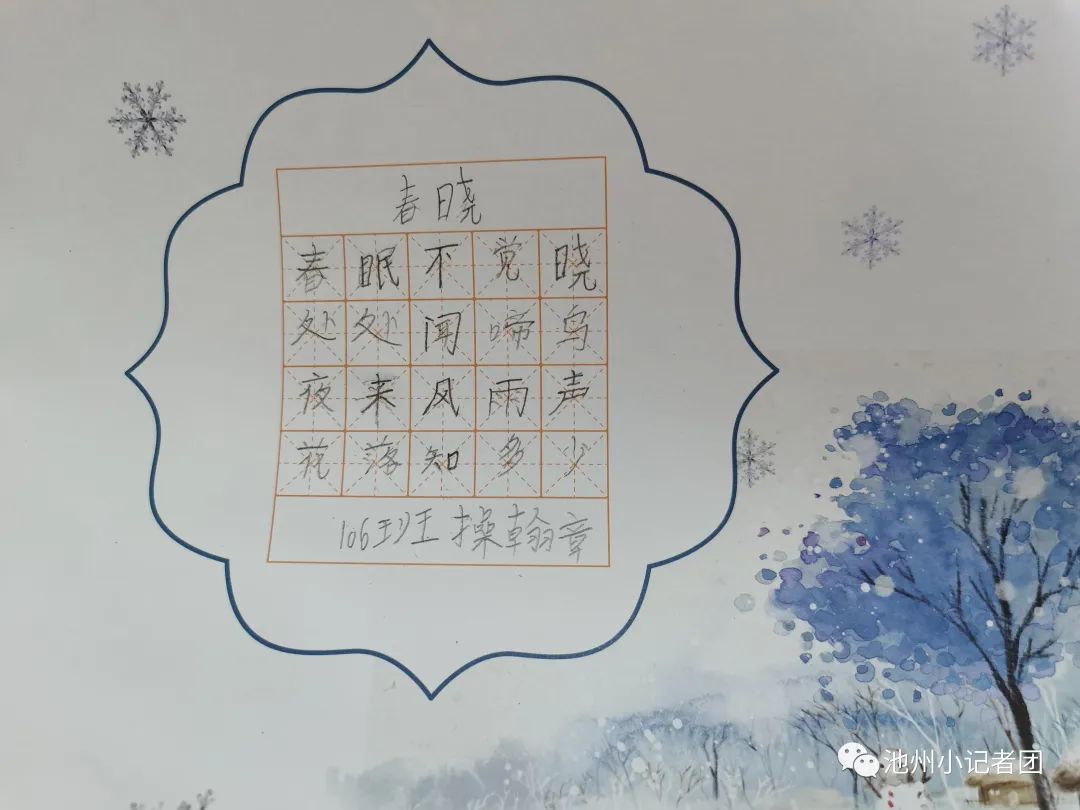 春晓
春眠不觉晓
处处闻啼鸟
夜来风雨声
花落知多少
106班 操翰章
池州小记者团